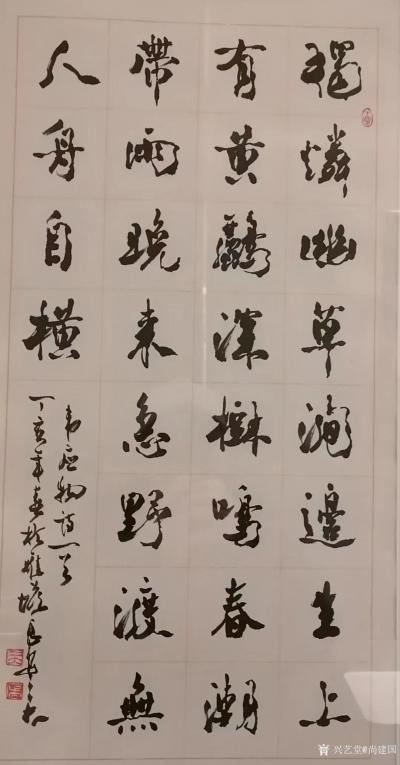 獨憐幽草澗邊生上
有黄鸝深樹鳴春潮
帶雨晚来急野渡無
人舟自橫
韦应物诗一首
丁亥年春於
兴艺堂@尚建国